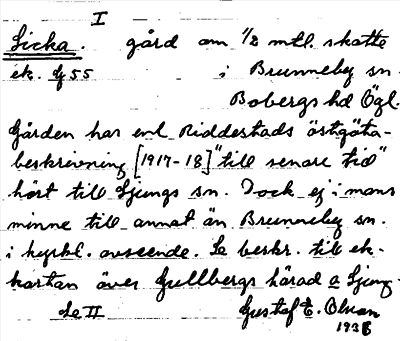 I
Sicka. gård om 1/2 mtl. skatte
ek. bl 55 i Brunneby sn
Bobergs hd Ögl.
Gården har enl Riddestads östgöta-
beskrivning [1917-18] "till senare tid"
hört till Ljungs sn. Dock ej i mans
minne till annat än Brunneby sn.
i kyrkl. avseende. Se beskr. till ek.
kartan över Gullbergs härad o Ljung.
Se II Gustaf E. Olsson
1938